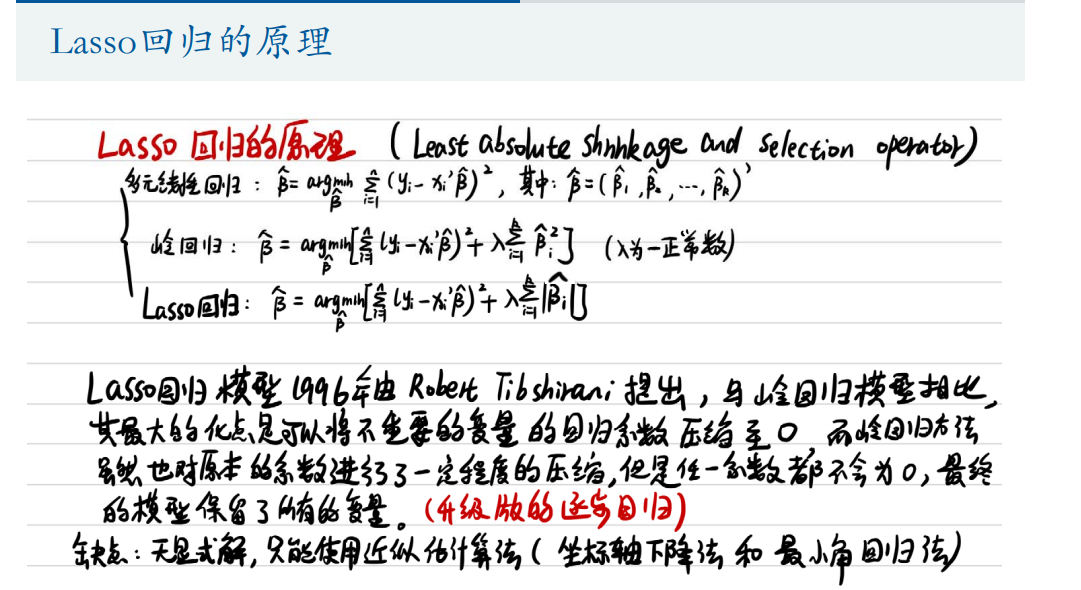 Lasso回归的原理
Lasso 回归的原理 (Least absolute shrinkage and selection operator)
多元线性回归: β̂ = argmin_β̂ Σ_{i=1}^{n} (yᵢ - xᵢ'β̂)², 其中: β̂ = (β̂₁, β̂₂, ⋯, β̂ₖ)'
岭回归: β̂ = argmin_β̂ [Σ_{i=1}^{n} (yᵢ - xᵢ'β̂)² + λ Σ_{i=1}^{k} β̂ᵢ²] (λ为一正常数)
Lasso回归: β̂ = argmin_β̂ [Σ_{i=1}^{n} (yᵢ - xᵢ'β̂)² + λ Σ_{i=1}^{k} |β̂ᵢ|]
Lasso回归模型 1996年由 Robert Tibshirani 提出, 与岭回归模型相比,
其最大的优点是可以将不重要的变量的回归系数压缩至0, 而岭回归方法
虽然也对原本的系数进行了一定程度的压缩, 但是任一系数都不会为0, 最终
的模型保留了所有的变量。(升级版的逐步回归)
缺点: 无显式解, 只能使用近似估计算法 (坐标轴下降法 和 最小角回归法)